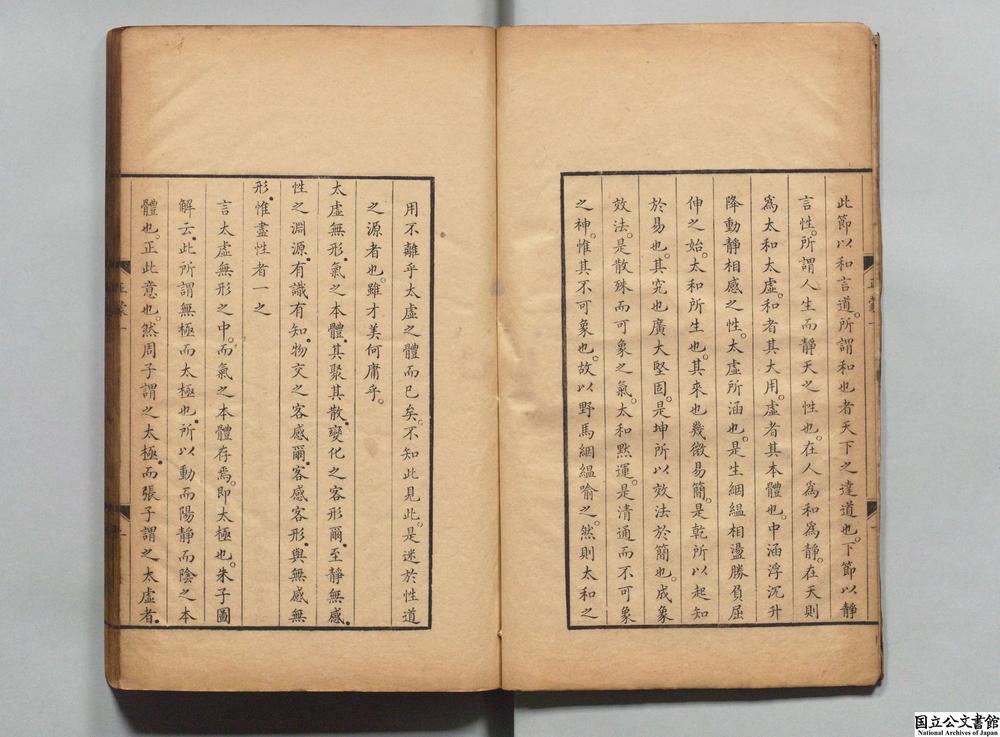 此節以和言道。所謂和也者天下之達道也。下節以靜
言性。所謂人生而靜天之性也。在人爲和爲靜。在天則
爲太和太虛。和者其大用。虛者其本體也。中涵浮沉升
降動靜相感之性。太虛所涵也。是生絪縕相盪勝負屈
伸之始。太和所生也。其來也幾微易簡。是乾所以起知
於易也。其究也廣大堅固。是坤所以效法於簡也。成象
效法。是散殊而可象之氣。太和默運。是清通而不可象
之神。惟其不可象也。故以野馬絪縕喻之。然則太和之
用不離乎太虛之體而已矣。不知此見此。是迷於性道
之源者也。雖才美何庸乎。
太虛無形。氣之本體。其聚其散。變化之客形爾。至靜無感。
性之淵源。有識有知。物交之客感爾。客感客形。與無感無
形。惟盡性者一之
言太虛無形之中。而氣之本體存焉。即太極也。朱子圖
解云。此所謂無極而太極也。所以動而陽靜而陰之本
體也。正此意也。然周子謂之太極。而張子謂之太虛者。
正蒙一
国立公文書館
National Archives of Japan